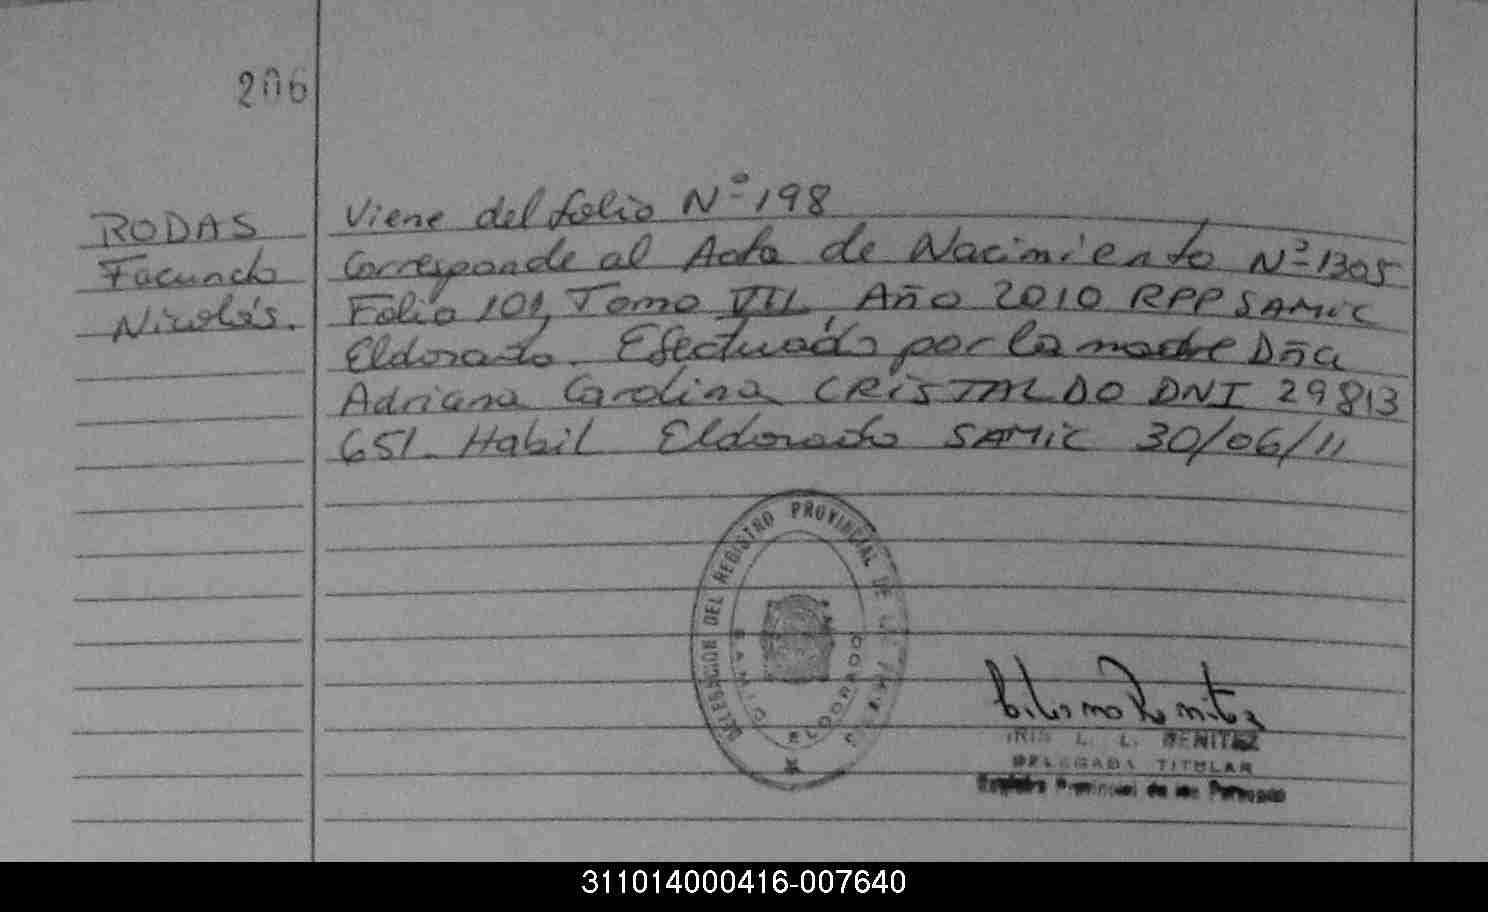 206
RODAS
Facundo
Nicolás.
Viene del folio Nº 198
Corresponde al Acta de Nacimiento Nº 1305
Folio 101, Tomo VII, Año 2010 RPP SAMIC
Eldorado. Efectuado por la madre Dña
Adriana Carolina CRISTALDO DNI 29813
651. Habil Eldorado SAMIC 30/06/11
DELEGACION DEL REGISTRO PROVINCIAL DE
ELDORADO
IRIS L. L. BENITEZ
DELEGADA TITULAR
Registro Provincial de las Personas
311014000416-007640